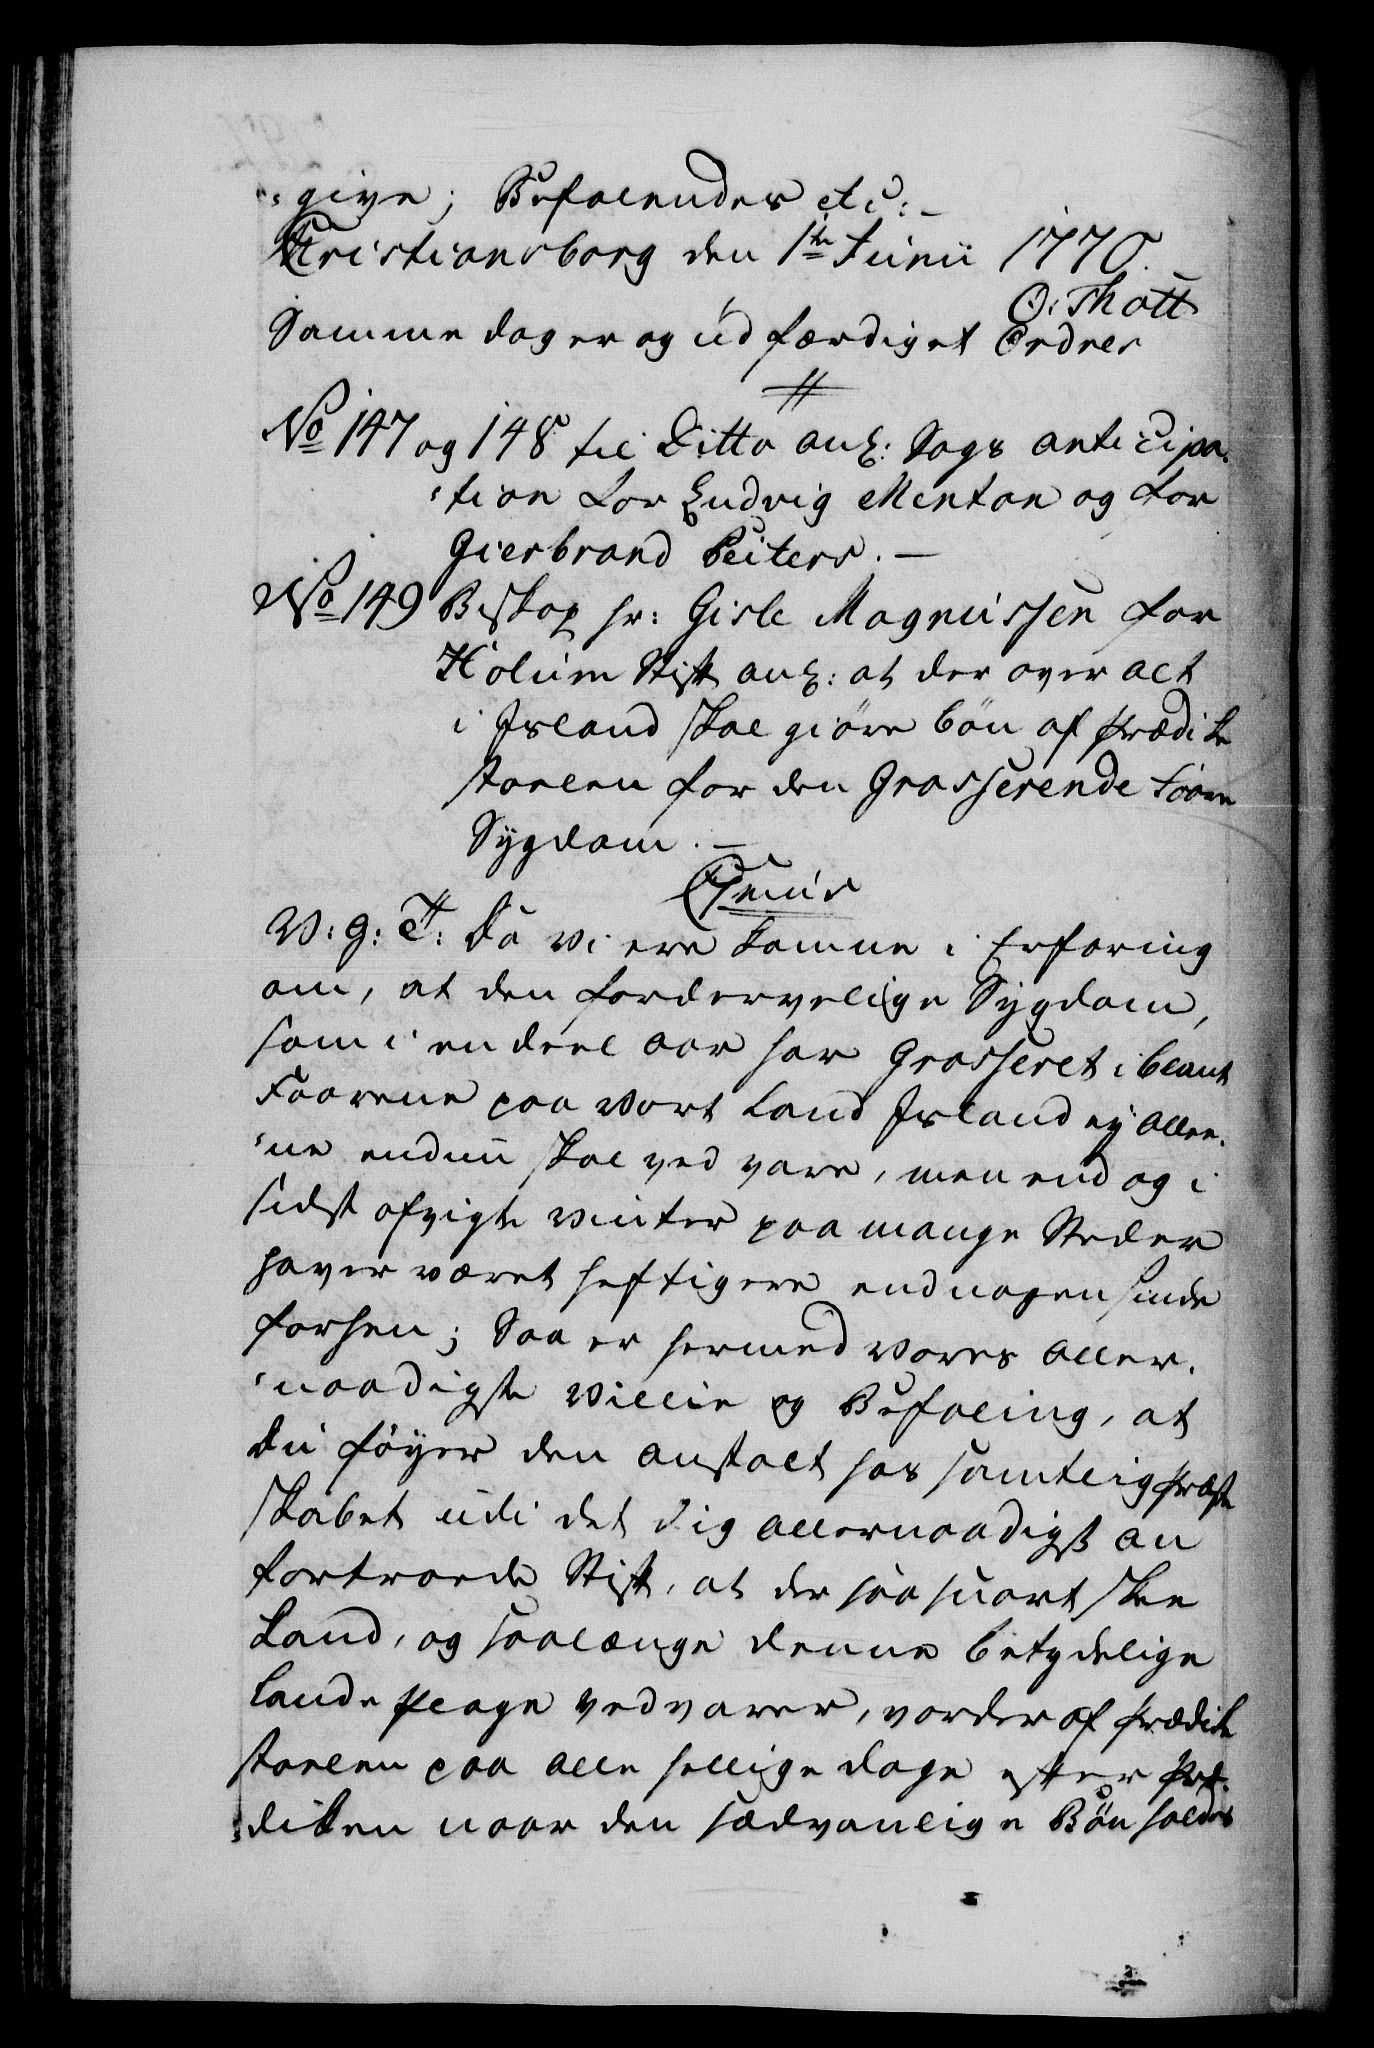 -give; Befalendes etc:-
Christiansborg den 1te Junii 1770.
O: Thott
Samme dag er og udfærdiget Ordres
No 147 og 148 til Ditto anl: Sags anticipa-
-tion for Ludvig Menton og for
Gierbrand Peiters.-
No 149 Biskop hr: Gisle Magnussen for
Holum Stift anl: at der over alt
i Island skal giøre bön af prædike
stoelen for den Grasserende Faare
Sygdom.-
Genus
V: G: T: Da vi ere komne i Erfaring
om, at den fordervelige Sygdom,
som i en deel aar har Grasseret iblant
Faarene paa vort Land Island ey allee-
-ne endnu skal ved vare, men end og i
sidst afvigte vinter paa mange Steder
haver været heftigere end nogensinde
forhen; Saa er hermed vores aller-
-naadigste villie og Befaling, at
du föyer den anstalt hos samtlig præste
skabet udi det dig allernaadigst an
fortroede Stift, at der saa snart skee
kand, og saalænge denne betydelige
Lande plage vedvarer, vorder af prædike
stoelen paa alle hellige dage efter Præ-
-diken naar den sædvanlige Bön holdes